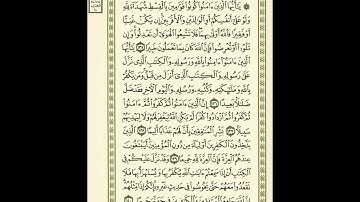 ۞ يَٰٓأَيُّهَا ٱلَّذِينَ ءَامَنُوا۟ كُونُوا۟ قَوَّٰمِينَ بِٱلْقِسْطِ شُهَدَآءَ لِلَّهِ
وَلَوْ عَلَىٰٓ أَنفُسِكُمْ أَوِ ٱلْوَٰلِدَيْنِ وَٱلْأَقْرَبِينَ إِن يَكُنْ غَنِيًّا
أَوْ فَقِيرًا فَٱللَّهُ أَوْلَىٰ بِهِمَا فَلَا تَتَّبِعُوا۟ ٱلْهَوَىٰٓ أَن تَعْدِلُوا۟ وَإِن
تَلْوُۥٓا۟ أَوْ تُعْرِضُوا۟ فَإِنَّ ٱللَّهَ كَانَ بِمَا تَعْمَلُونَ خَبِيرًا ١٣٥ يَٰٓأَيُّهَا
ٱلَّذِينَ ءَامَنُوٓا۟ ءَامِنُوا۟ بِٱللَّهِ وَرَسُولِهِۦ وَٱلْكِتَٰبِ ٱلَّذِى نَزَّلَ
عَلَىٰ رَسُولِهِۦ وَٱلْكِتَٰبِ ٱلَّذِىٓ أَنزَلَ مِن قَبْلُ وَمَن يَكْفُرْ
بِٱللَّهِ وَمَلَٰٓئِكَتِهِۦ وَكُتُبِهِۦ وَرُسُلِهِۦ وَٱلْيَوْمِ ٱلْءَاخِرِ فَقَدْ ضَلَّ
ضَلَٰلًۢا بَعِيدًا ١٣٦ إِنَّ ٱلَّذِينَ ءَامَنُوا۟ ثُمَّ كَفَرُوا۟ ثُمَّ ءَامَنُوا۟
ثُمَّ كَفَرُوا۟ ثُمَّ ٱزْدَادُوا۟ كُفْرًا لَّمْ يَكُنِ ٱللَّهُ لِيَغْفِرَ لَهُمْ وَلَا لِيَهْدِيَهُمْ
سَبِيلًۢا ١٣٧ بَشِّرِ ٱلْمُنَٰفِقِينَ بِأَنَّ لَهُمْ عَذَابًا أَلِيمًا ١٣٨ ٱلَّذِينَ
يَتَّخِذُونَ ٱلْكَٰفِرِينَ أَوْلِيَآءَ مِن دُونِ ٱلْمُؤْمِنِينَ أَيَبْتَغُونَ
عِندَهُمُ ٱلْعِزَّةَ فَإِنَّ ٱلْعِزَّةَ لِلَّهِ جَمِيعًا ١٣٩ وَقَدْ نَزَّلَ عَلَيْكُمْ فِى
ٱلْكِتَٰبِ أَنْ إِذَا سَمِعْتُمْ ءَايَٰتِ ٱللَّهِ يُكْفَرُ بِهَا وَيُسْتَهْزَأُ بِهَا فَلَا
تَقْعُدُوا۟ مَعَهُمْ حَتَّىٰ يَخُوضُوا۟ فِى حَدِيثٍ غَيْرِهِۦٓ إِنَّكُمْ إِذًا مِّثْلُهُمْ
إِنَّ ٱللَّهَ جَامِعُ ٱلْمُنَٰفِقِينَ وَٱلْكَٰفِرِينَ فِى جَهَنَّمَ جَمِيعًا ١٤٠